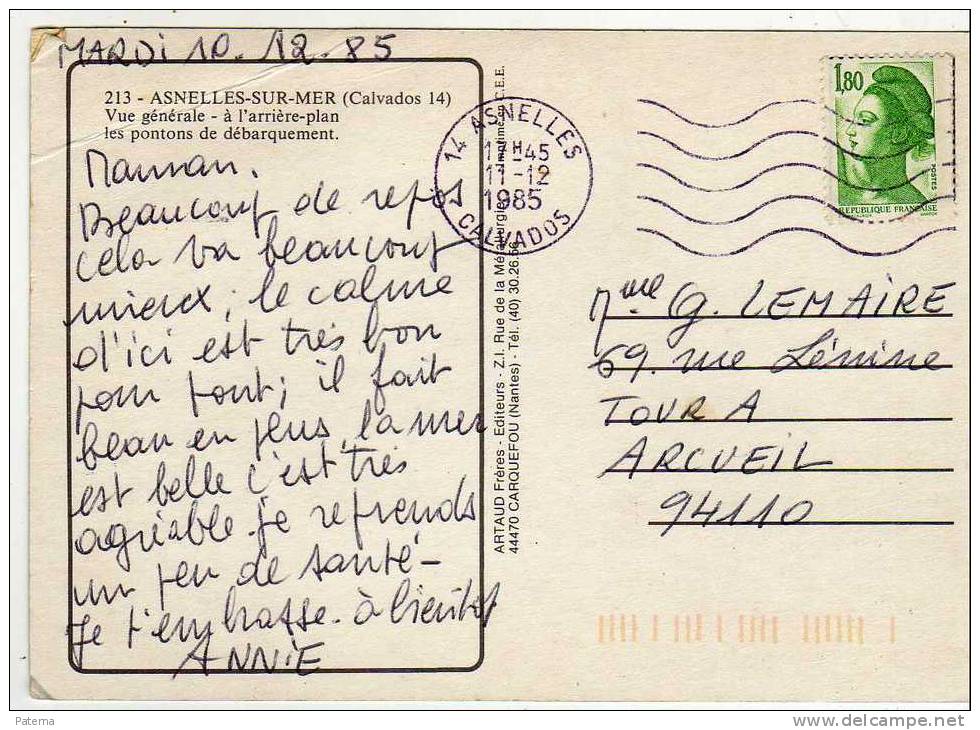 MARDI 10.12.85
213 - ASNELLES-SUR-MER (Calvados 14)
Vue générale - à l'arrière-plan
les pontons de débarquement.
Maman.
Beaucoup de repos
cela va beaucoup
mieux; le calme
d'ici est très bon
pour tout; il fait
beau en plus, la mer
est belle c'est très
agréable. je reprends
un peu de santé-
Je t'embrasse. à bientôt
ANNIE
ARTAUD Frères - Editeurs - Z.I. Rue de la Métallurgie
44470 CARQUEFOU (Nantes) - Tél. (40) 30.26.56
Imprimé en C.E.E.
14 ASNELLES
17H45
11-12
1985
CALVADOS
1,80
POSTES
REPUBLIQUE FRANÇAISE
Mme G. LEMAIRE
69. rue Lénine
TOUR A
ARCUEIL
94110
Paterna
www.delcampe.net